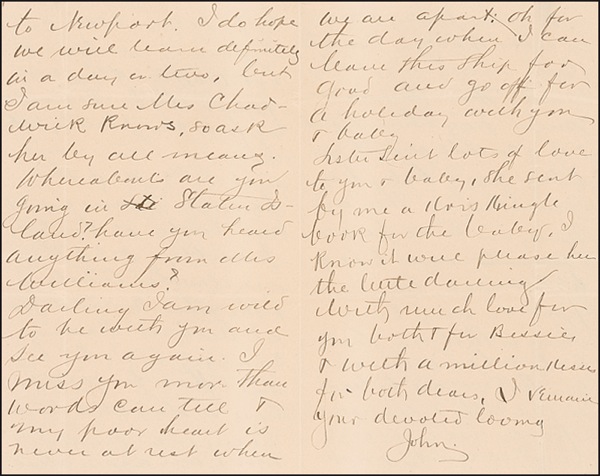 to Newport. I do hope
we will learn definitely
in a day or two, but
I am sure Mrs Chad-
wick knows, so ask
her by all means.
Whereabouts are you
going in Staten Is-
land? have you heard
anything from Mrs
Williams?
Darling I am wild
to be with you and
see you again. I
miss you more than
words can tell &
my poor heart is
never at rest when
we are apart; oh for
the day when I can
leave this ship for
good and go off for
a holiday with you
& baby
Sister sent lots of love
to you & baby, she sent
by me a Kris Kringle
book for the baby, I
know it will please her
the little darling
With much love for
you both & for Bessie,
& with a million kisses
for both dears, I remain
your devoted loving
John.